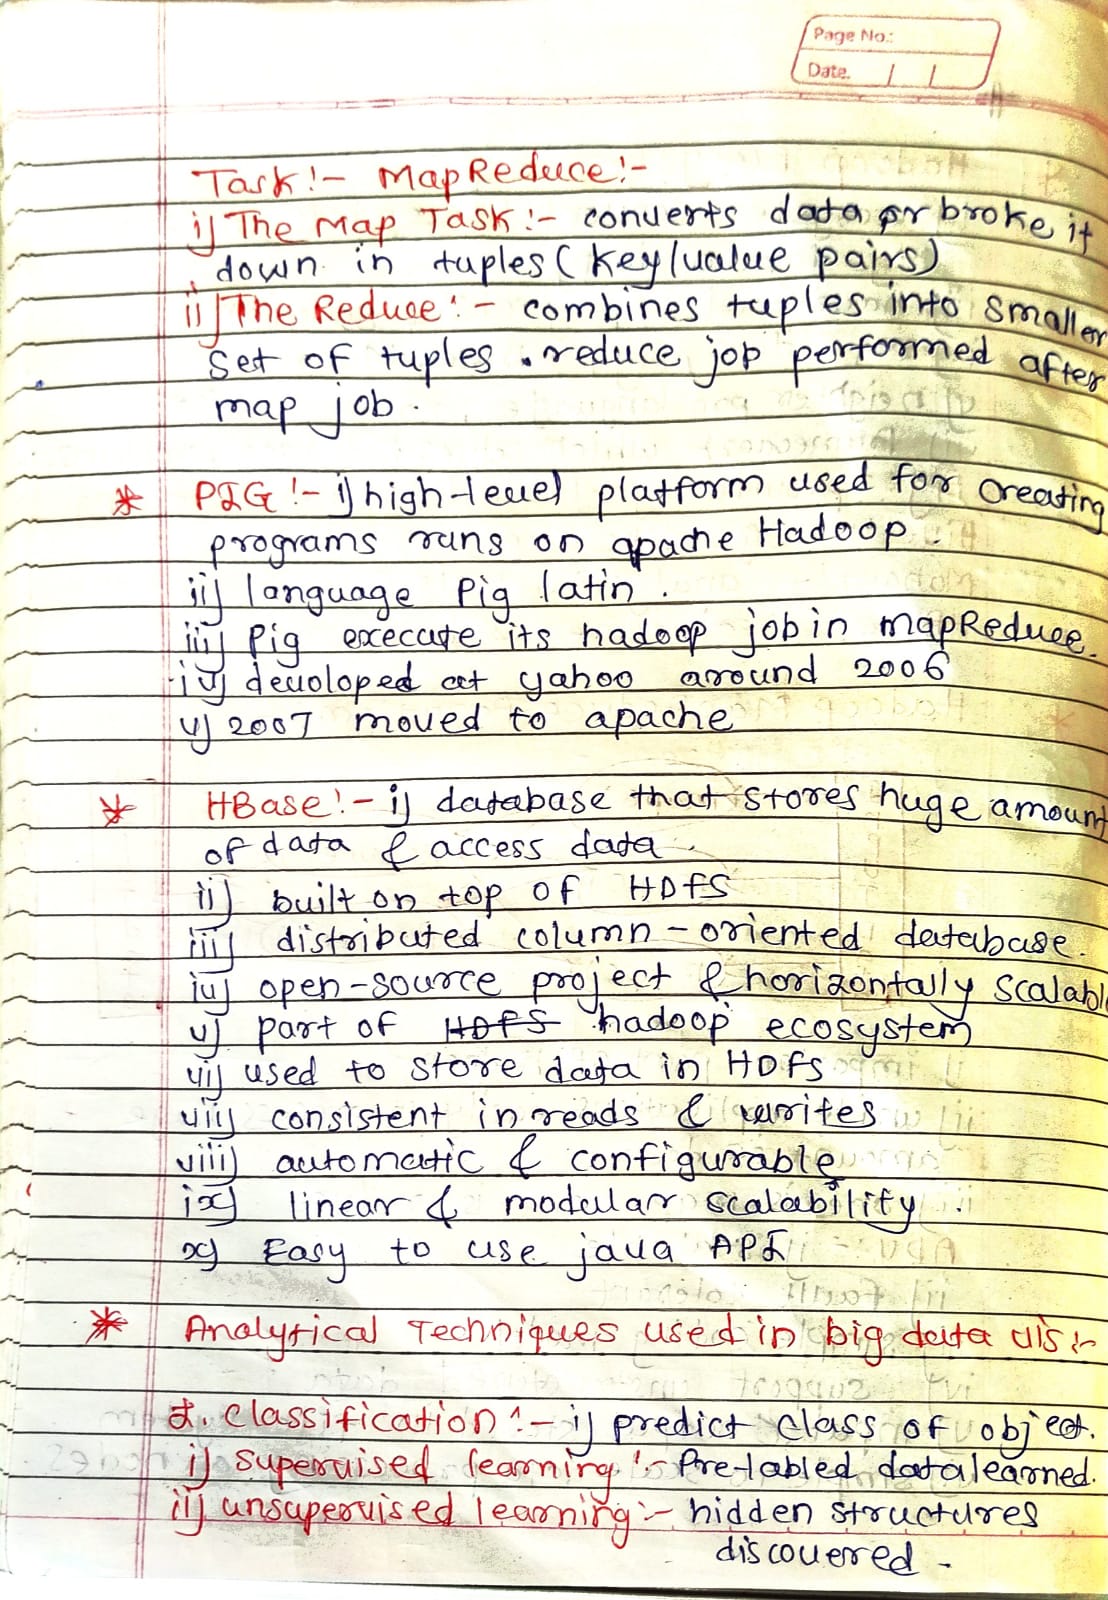 Page No.:
Date. / /
Task :- MapReduce :-
i) The Map Task :- converts data or broke it
down in tuples (key/value pairs)
ii) The Reduce :- combines tuples into smaller
set of tuples . reduce job performed after
map job .
* PIG :- i) high-level platform used for creating
programs runs on apache Hadoop .
ii) language Pig latin .
iii) Pig execute its hadoop job in mapReduce.
iv) devoloped at yahoo around 2006
v) 2007 moved to apache
* HBase :- i) database that stores huge amount
of data & access data .
ii) built on top of HDFS
iii) distributed column-oriented database.
iv) open-source project & horizontally scalable
v) part of HDFS hadoop ecosystem
vi) used to store data in HDFS
vii) consistent in reads & writes
viii) automatic & configurable
ix) linear & modular scalability .
x) Easy to use java API
* Analytical Techniques used in big data vis :-
1. classification :- i) predict class of object.
i) supervised learning :- Pre-labled data learned.
ii) unsupervised learning :- hidden structures
discovered -